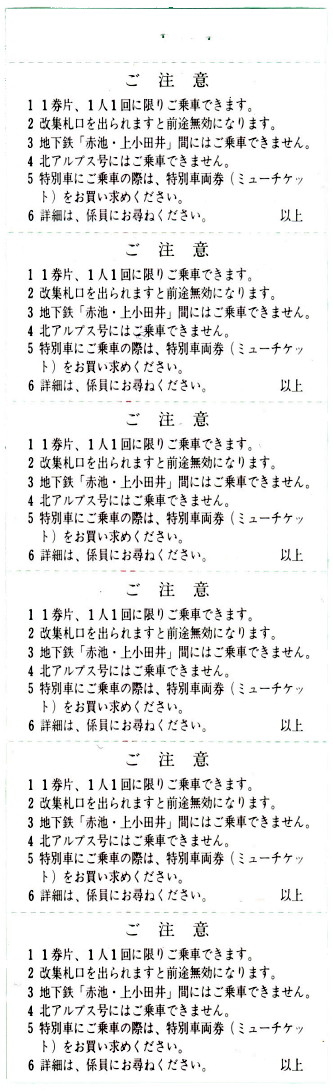 ご注意
1 1券片、1人1回に限りご乗車できます。
2 改集札口を出られますと前途無効になります。
3 地下鉄「赤池・上小田井」間にはご乗車できません。
4 北アルプス号にはご乗車できません。
5 特別車にご乗車の際は、特別車両券（ミューチケッ
ト）をお買い求めください。
6 詳細は、係員にお尋ねください。 以上
ご注意
1 1券片、1人1回に限りご乗車できます。
2 改集札口を出られますと前途無効になります。
3 地下鉄「赤池・上小田井」間にはご乗車できません。
4 北アルプス号にはご乗車できません。
5 特別車にご乗車の際は、特別車両券（ミューチケッ
ト）をお買い求めください。
6 詳細は、係員にお尋ねください。 以上
ご注意
1 1券片、1人1回に限りご乗車できます。
2 改集札口を出られますと前途無効になります。
3 地下鉄「赤池・上小田井」間にはご乗車できません。
4 北アルプス号にはご乗車できません。
5 特別車にご乗車の際は、特別車両券（ミューチケッ
ト）をお買い求めください。
6 詳細は、係員にお尋ねください。 以上
ご注意
1 1券片、1人1回に限りご乗車できます。
2 改集札口を出られますと前途無効になります。
3 地下鉄「赤池・上小田井」間にはご乗車できません。
4 北アルプス号にはご乗車できません。
5 特別車にご乗車の際は、特別車両券（ミューチケッ
ト）をお買い求めください。
6 詳細は、係員にお尋ねください。 以上
ご注意
1 1券片、1人1回に限りご乗車できます。
2 改集札口を出られますと前途無効になります。
3 地下鉄「赤池・上小田井」間にはご乗車できません。
4 北アルプス号にはご乗車できません。
5 特別車にご乗車の際は、特別車両券（ミューチケッ
ト）をお買い求めください。
6 詳細は、係員にお尋ねください。 以上
ご注意
1 1券片、1人1回に限りご乗車できます。
2 改集札口を出られますと前途無効になります。
3 地下鉄「赤池・上小田井」間にはご乗車できません。
4 北アルプス号にはご乗車できません。
5 特別車にご乗車の際は、特別車両券（ミューチケッ
ト）をお買い求めください。
6 詳細は、係員にお尋ねください。 以上